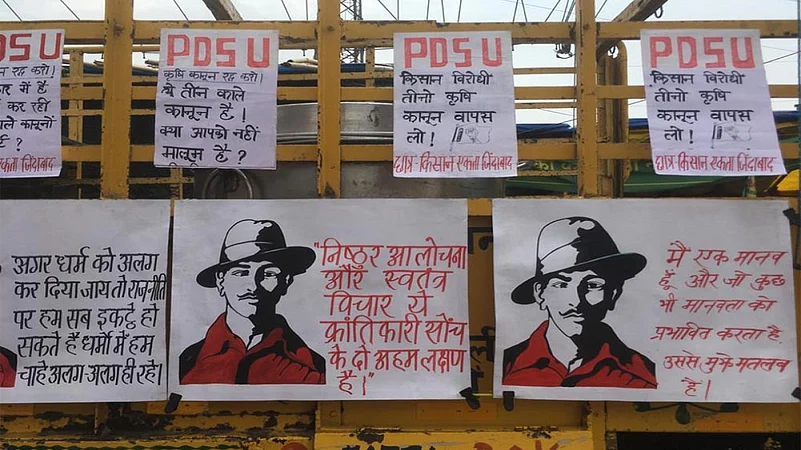 DSU
कानून रद्द करो।
में है
कर रही
काले कानूनों
एकता जिंदाबाद
PDSU
कृषि कानून रद्द करो।
ये तीन काले
कानून है।
क्या आपको नहीं
मालूम है ?
PDSU
किसान विरोधी
तीनो कृषि
कानून वापस
लो!
छात्र-किसान एकता जिंदाबाद
PDSU
किसान विरोधी
तीनो कृषि
कानून वापस
लो!
छात्र-किसान एकता जिंदाबाद
अगर धर्म को अलग
कर दिया जाय तो राजनीति
पर हम सब इकट्ठे हो
सकते हैं धर्मो में हम
चाहे अलग-अलग ही रहें।
"निष्ठुर आलोचना
और स्वतंत्र
विचार ये
क्रांतिकारी सोंच
के दो अहम लक्षण
है।"
मैं एक मानव
हूँ और जो कुछ
भी मानवता को
प्रभावित करता है
उससे मुझे मतलब
है।